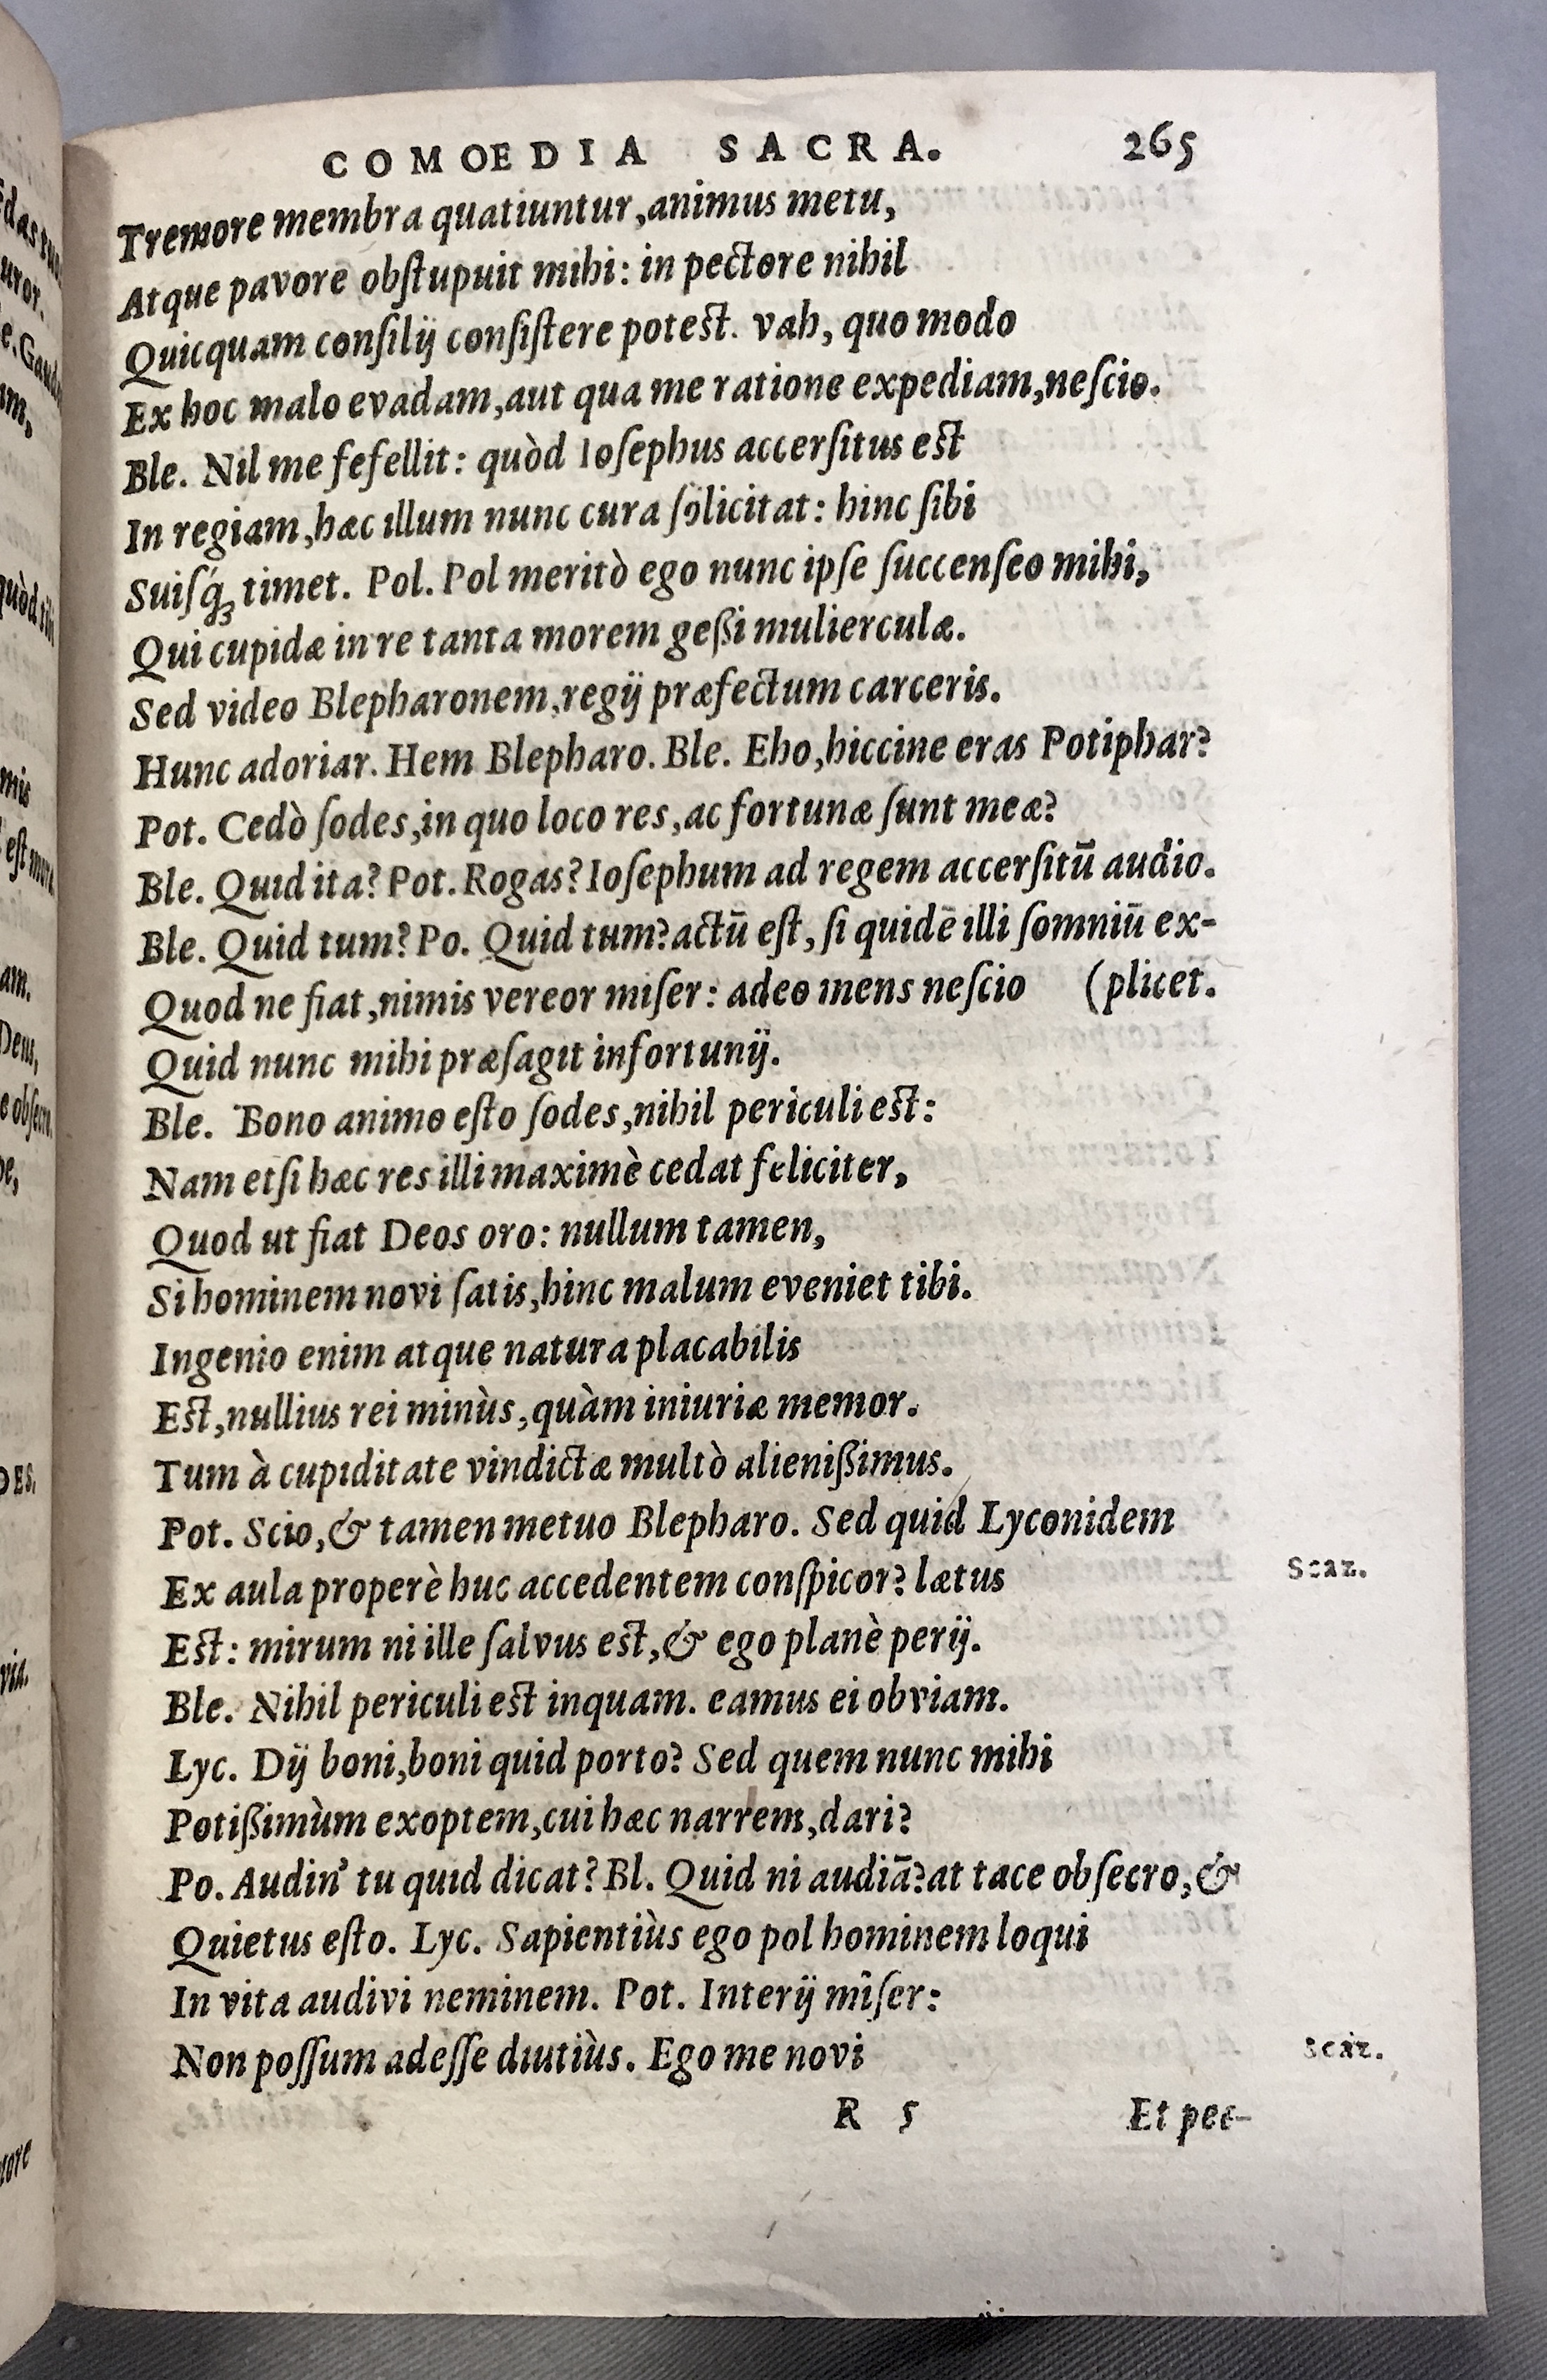 COMOEDIA SACRA. 265
Tremore membra quatiuntur, animus metu,
Atque pavore obſtupuit mihi: in pectore nihil
Quicquam conſilij conſiſtere poteſt. vah, quo modo
Ex hoc malo evadam, aut qua me ratione expediam, neſcio.
Ble. Nil me fefellit: quòd Ioſephus accerſitus eſt
In regiam, hæc illum nunc cura ſolicitat: hinc ſibi
Suiſq́ꝫ timet. Pol. Pol meritò ego nunc ipſe ſuccenſeo mihi,
Qui cupidæ in re tanta morem geßi mulierculæ.
Sed video Blepharonem, regij præfectum carceris.
Hunc adoriar. Hem Blepharo. Ble. Eho, hiccine eras Potiphar?
Pot. Cedò ſodes, in quo loco res, ac fortunæ ſunt meæ?
Ble. Quid ita? Pot. Rogas? Ioſephum ad regem accerſitū audio.
Ble. Quid tum? Po. Quid tum? actū eſt, ſi quidē illi ſomniū ex-
Quod ne fiat, nimis vereor miſer: adeo mens neſcio (plicet.
Quid nunc mihi præſagit infortunij.
Ble. Bono animo eſto ſodes, nihil periculi eſt:
Nam etſi hæc res illi maximè cedat feliciter,
Quod ut fiat Deos oro: nullum tamen,
Si hominem novi ſatis, hinc malum eveniet tibi.
Ingenio enim atque natura placabilis
Eſt, nullius rei minùs, quàm iniuriæ memor.
Tum à cupiditate vindictæ multò alienißimus.
Pot. Scio, & tamen metuo Blepharo. Sed quid Lyconidem
Ex aula properè huc accedentem conſpicor? lætus Scaz.
Eſt: mirum ni ille ſalvus eſt, & ego planè perij.
Ble. Nihil periculi eſt inquam. eamus ei obviam.
Lyc. Dij boni, boni quid porto? Sed quem nunc mihi
Potißimùm exoptem, cui hæc narrem, dari?
Po. Audin' tu quid dicat? Bl. Quid ni audiā? at tace obſecro, &
Quietus eſto. Lyc. Sapientiùs ego pol hominem loqui
In vita audivi neminem. Pot. Interij miſer:
Non poſſum adeſſe diutiùs. Ego me novi Scaz.
R 5 Et pec-